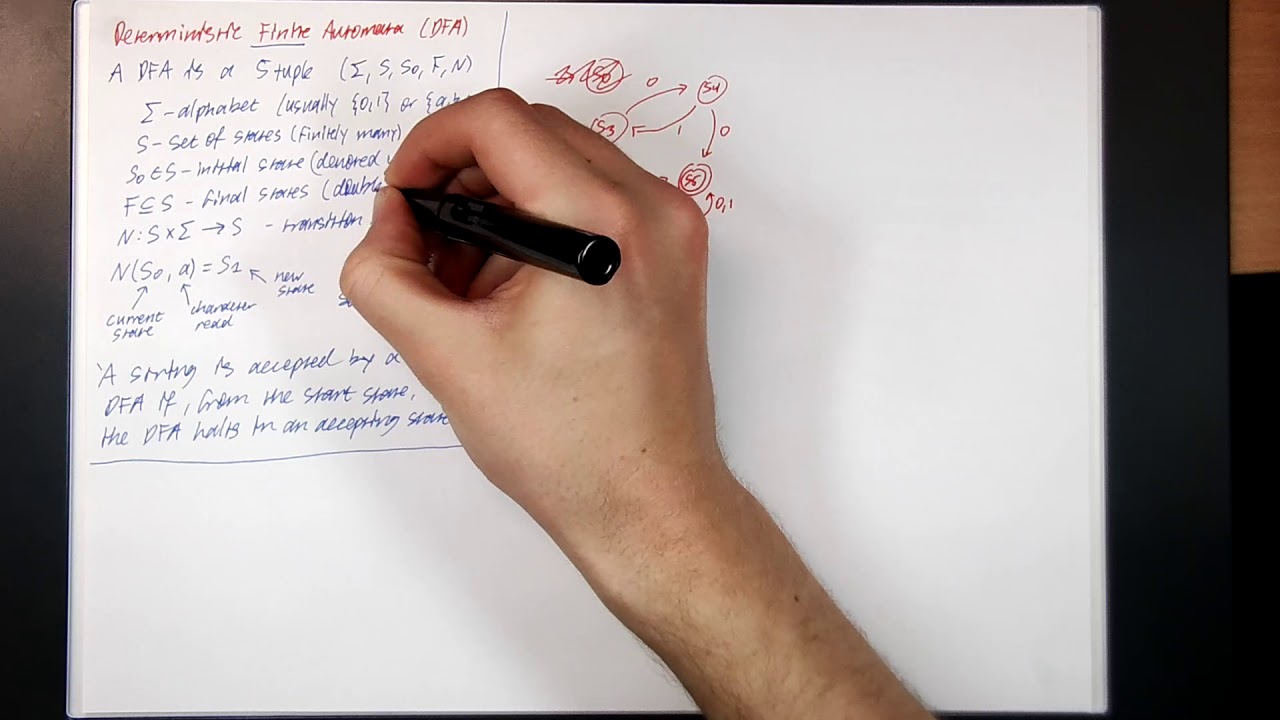 Deterministic Finite Automata (DFA)
A DFA is a 5 tuple (Σ, S, S₀, F, N)
Σ - alphabet (usually {0,1} or {a,b
S - set of states (finitely many)
S₀ ∈ S - initial state (denoted
F ⊆ S - final states (double
N : S × Σ → S - transition
N(S₀, a) = S₁
new
state
current
state
character
read
A string is accepted by a
DFA if, from the start state,
the DFA halts in an accepting state
S₀
0
S4
S3
1
0
S5
0,1